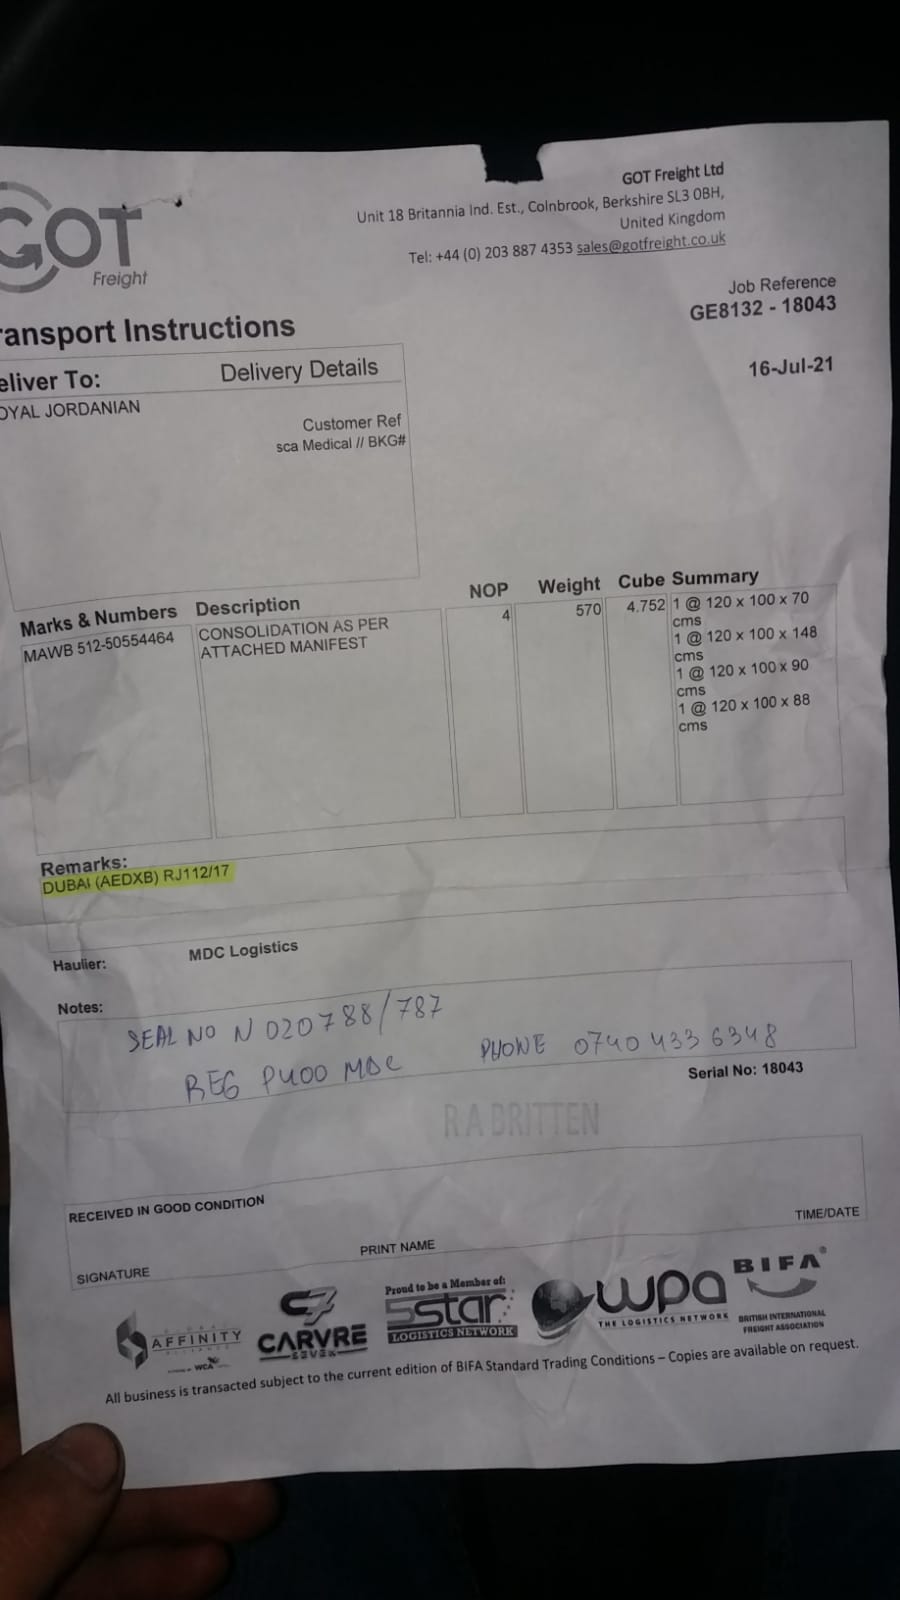 GOT
Freight
GOT Freight Ltd
Unit 18 Britannia Ind. Est., Colnbrook, Berkshire SL3 0BH,
United Kingdom
Tel: +44 (0) 203 887 4353 sales@gotfreight.co.uk
Job Reference
GE8132 - 18043
ransport Instructions
16-Jul-21
eliver To:
Delivery Details
OYAL JORDANIAN
Customer Ref
sca Medical // BKG#
Marks & Numbers Description NOP Weight Cube Summary
MAWB 512-50554464 CONSOLIDATION AS PER 4 570 4.752 1 @ 120 x 100 x 70
ATTACHED MANIFEST cms
1 @ 120 x 100 x 148
cms
1 @ 120 x 100 x 90
cms
1 @ 120 x 100 x 88
cms
Remarks:
DUBAI (AEDXB) RJ112/17
Haulier: MDC Logistics
Notes:
SEAL NO N 020788/787
REG P400 MDC PHONE 0740 433 6348
Serial No: 18043
R A BRITTEN
RECEIVED IN GOOD CONDITION
SIGNATURE
PRINT NAME
TIME/DATE
AFFINITY
WCA
C7
CARVRE
SEVEN
Proud to be a Member of:
5star
LOGISTICS NETWORK
wpa
THE LOGISTICS NETWORK
BIFA®
BRITISH INTERNATIONAL
FREIGHT ASSOCIATION
All business is transacted subject to the current edition of BIFA Standard Trading Conditions – Copies are available on request.